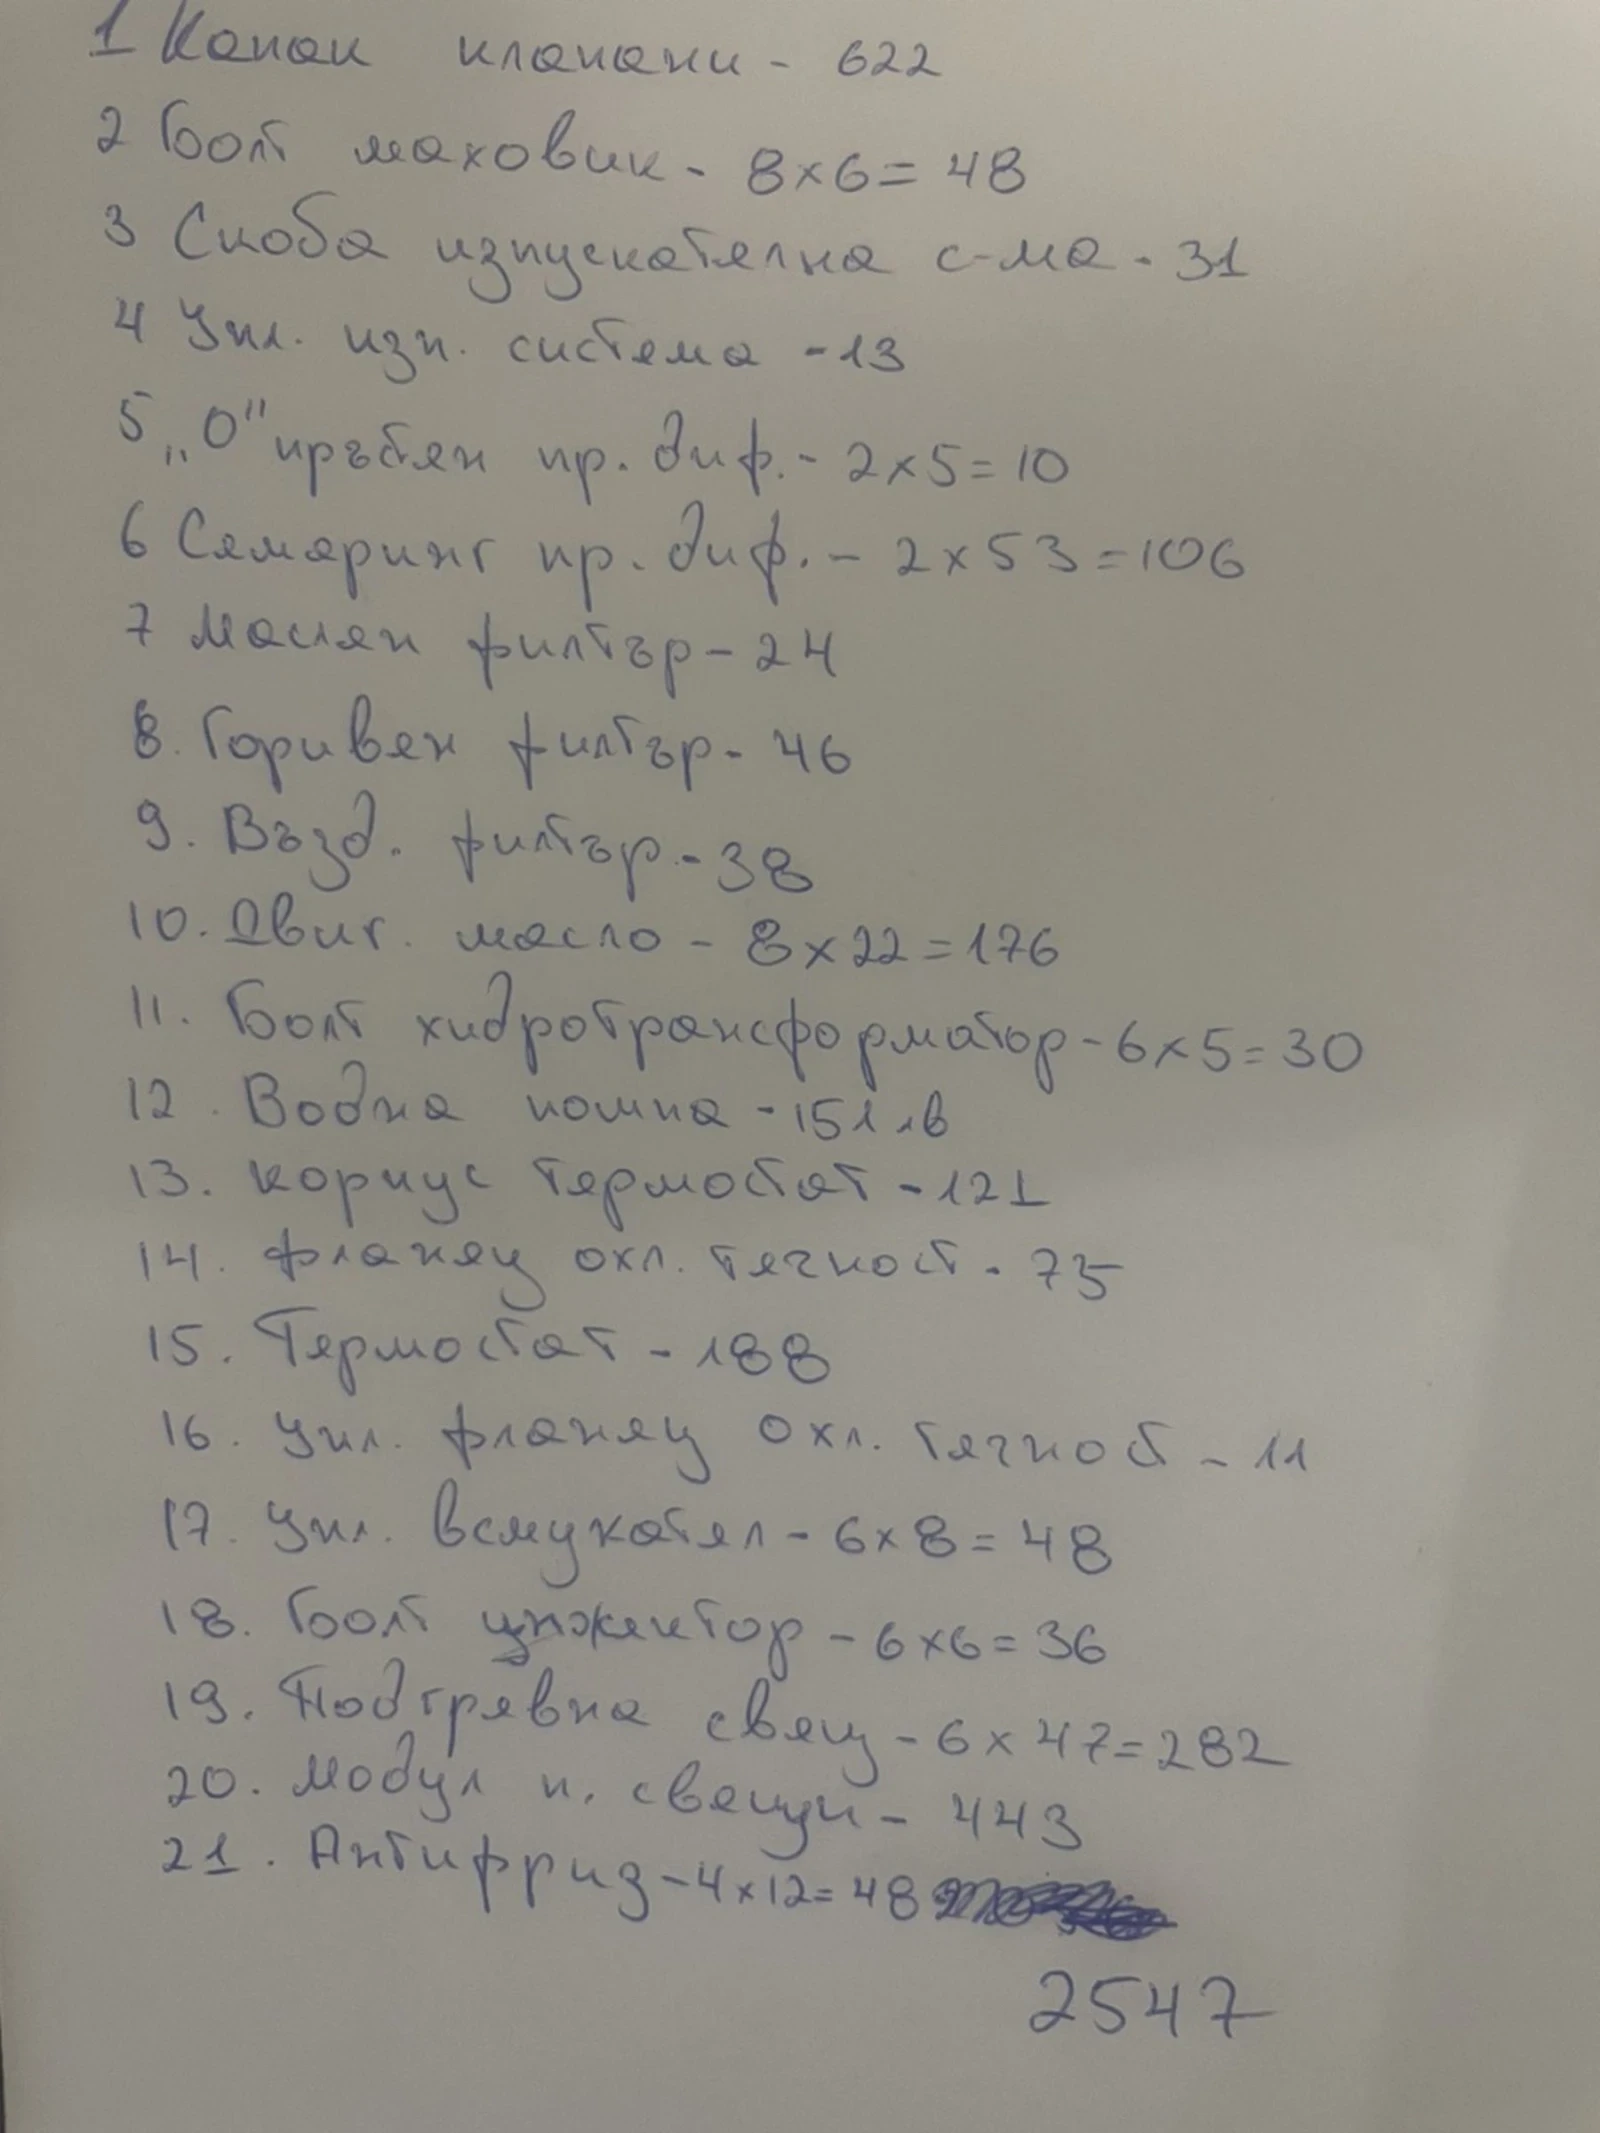 1 Капак клапани - 622
2 Болт маховик - 8x6=48
3 Скоба изпускателна с-ма - 31
4 Упл. изп. система - 13
5 „О" пръстен пр. диф. - 2x5=10
6 Семеринг пр. диф. - 2x53=106
7 Маслен филтър - 24
8. Горивен филтър - 46
9. Възд. филтър - 38
10. Двиг. масло - 8x22=176
11. Болт хидротрансформатор - 6x5=30
12. Водна помпа - 151 лв
13. корпус термостат - 121
14. фланец охл. течност - 75
15. Термостат - 188
16. Упл. фланец охл. течност - 11
17. Упл. всмукател - 6x8=48
18. Болт инжектор - 6x6=36
19. Подгревна свещ - 6x47=282
20. модул п. свещи - 443
21. Антифриз - 4x12=48
2547